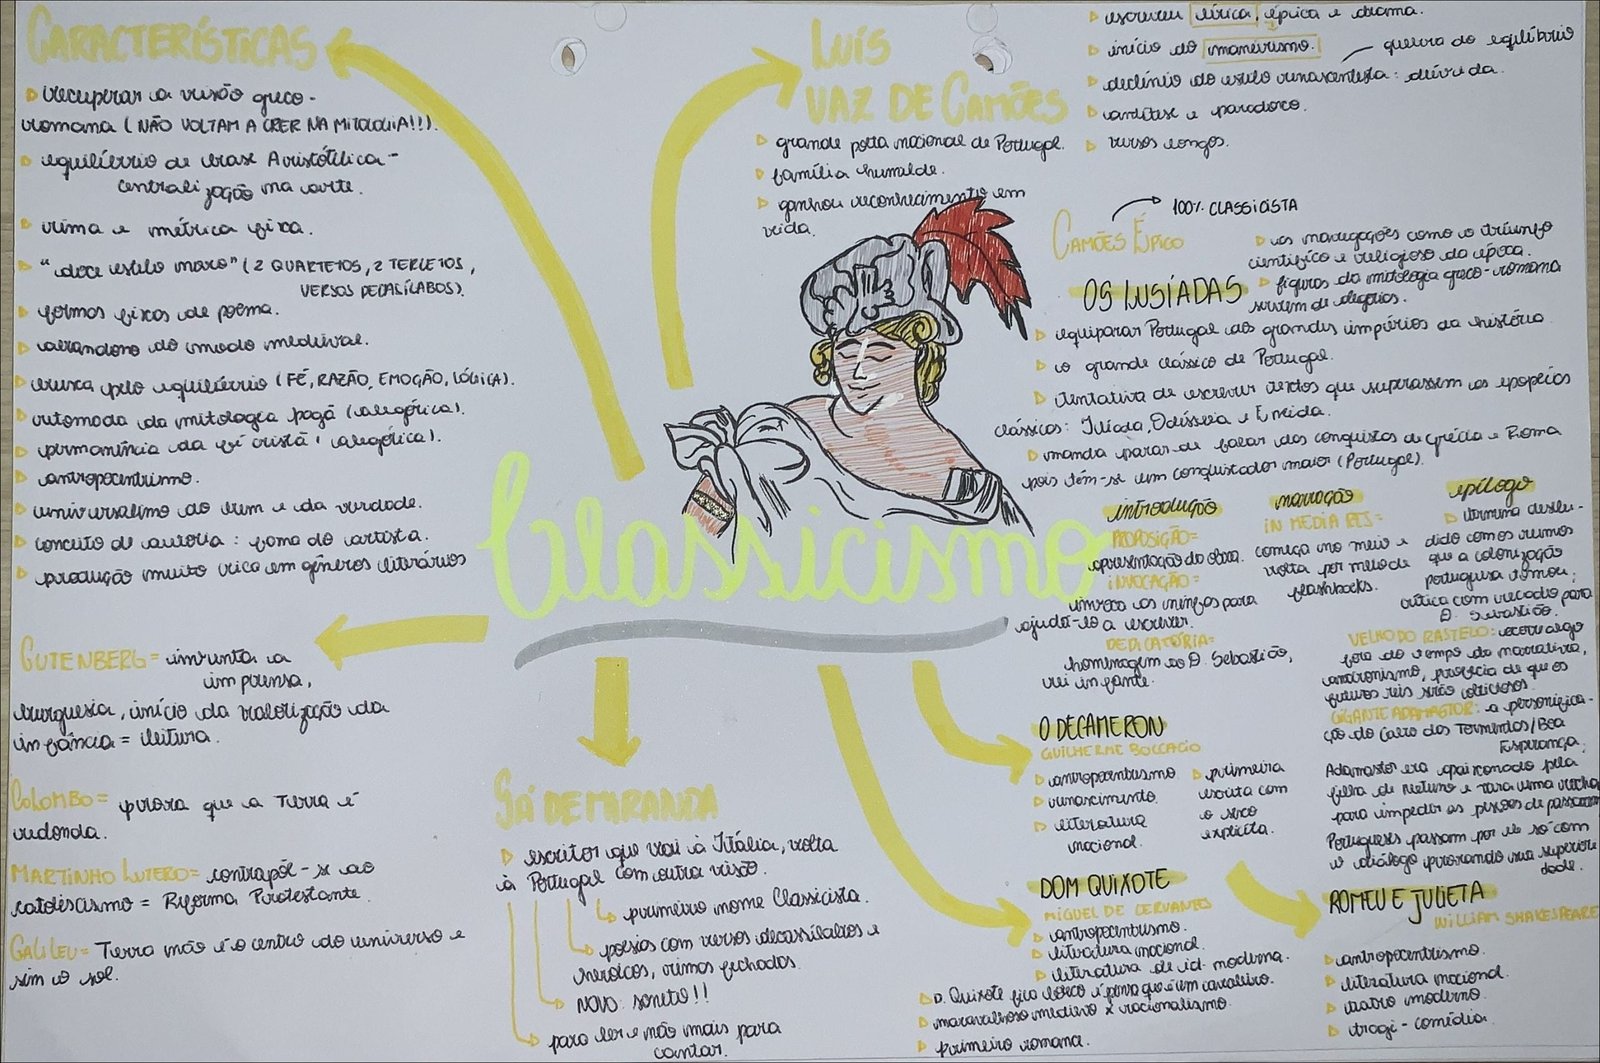 CARACTERÍSTICAS
recuperar a visão greco-
romana (NÃO VOLTAM A CRER NA MITOLOGIA!!).
equilíbrio de base Aristótelica-
centralização na arte.
rima e métrica fixa.
"doce estilo novo" (2 QUARTETOS, 2 TERCETOS,
VERSOS DECASÍLABOS).
formas fixas de poema.
abandono do modo medieval.
busca pelo equilíbrio (FÉ, RAZÃO, EMOÇÃO, LÓGICA).
retomada da mitologia pagã (alegórica).
permanência da fé cristã (alegórica).
antropocentrismo.
universalismo do bem e da verdade.
conceito de autoria: fama do artista.
produção muito rica em gêneros literários
GUTENBERG = inventa a
imprensa,
burguesia, início da valorização da
infância = leitura.
COLOMBO = prova que a Terra é
redonda.
MARTINHO LUTERO = contrapõe-se ao
catolicismo = Reforma Protestante.
GALILEU = Terra não é o centro do universo e
sim o sol.
Classicismo
SÁ DE MIRANDA
escritor que vai à Itália, volta
à Portugal com outra visão.
primeiro nome Classicista.
poesias com versos decassílabos e
heroicos, rimas fechadas.
NOVO: soneto!!
para ler e não mais para
cantar.
LUÍS
VAZ DE CAMÕES
grande poeta nacional de Portugal.
família humilde.
ganhou reconhecimento em
vida.
escreveu lírica, épica e drama.
início do maneirismo.
quebra do equilíbrio
declínio do estilo renascentista: dúvida.
antítese e paradoxo.
versos longos.
CAMÕES ÉPICO
100% CLASSICISTA
as navegações como o triunfo
científico e religioso da época.
OS LUSÍADAS
figuras da mitologia greco-romana
servem de alegorias.
equiparar Portugal aos grandes impérios da história
o grande clássico de Portugal.
tentativa de escrever textos que superassem as epopeias
clássicas: Ilíada, Odisseia e Eneida.
manda parar de falar das conquistas de grécia e Roma
pois têm-se um conquistador maior (Portugal).
introdução
PROPOSIÇÃO =
apresentação da obra.
INVOCAÇÃO =
invoca as ninfas para
ajudá-lo a escrever.
DEDICATÓRIA =
homenagem ao D. Sebastião,
rei infante.
narração
IN MEDIA RES =
começa no meio e
volta por meio de
flashbacks.
epílogo
termina deslu-
dido com os rumos
que a colonização
portuguesa tomou;
crítica com recado para
D. Sebastião.
VELHO DO RASTELO: ocorre algo
fora do tempo da narrativa,
anacronismo, profecia de que os
futuros reis serão cobiciosos.
GIGANTE ADAMASTOR: a personifica-
ção do Cabo das Tormentas/Boa
Esperança;
Adamastor era apaixonado pela
filha de Netuno e vira uma rocha
para impedir os peixes de passarem
Portugueses passam por ele só com
o diálogo provando sua superiori-
dade.
O DECAMERON
GUILHERME BOCCACIO
antropocentrismo.
renascimento.
literatura
nacional.
primeira
escrita com
o sexo
explícita.
DOM QUIXOTE
MIGUEL DE CERVANTES
antropocentrismo.
literatura nacional.
literatura de id. moderna.
D. Quixote fica louco e pensa que é um cavaleiro.
maravilhoso medievo x racionalismo.
primeiro romance.
ROMEU E JULIETA
WILLIAM SHAKESPEARE
antropocentrismo.
literatura nacional.
teatro moderno.
tragi-comédia.